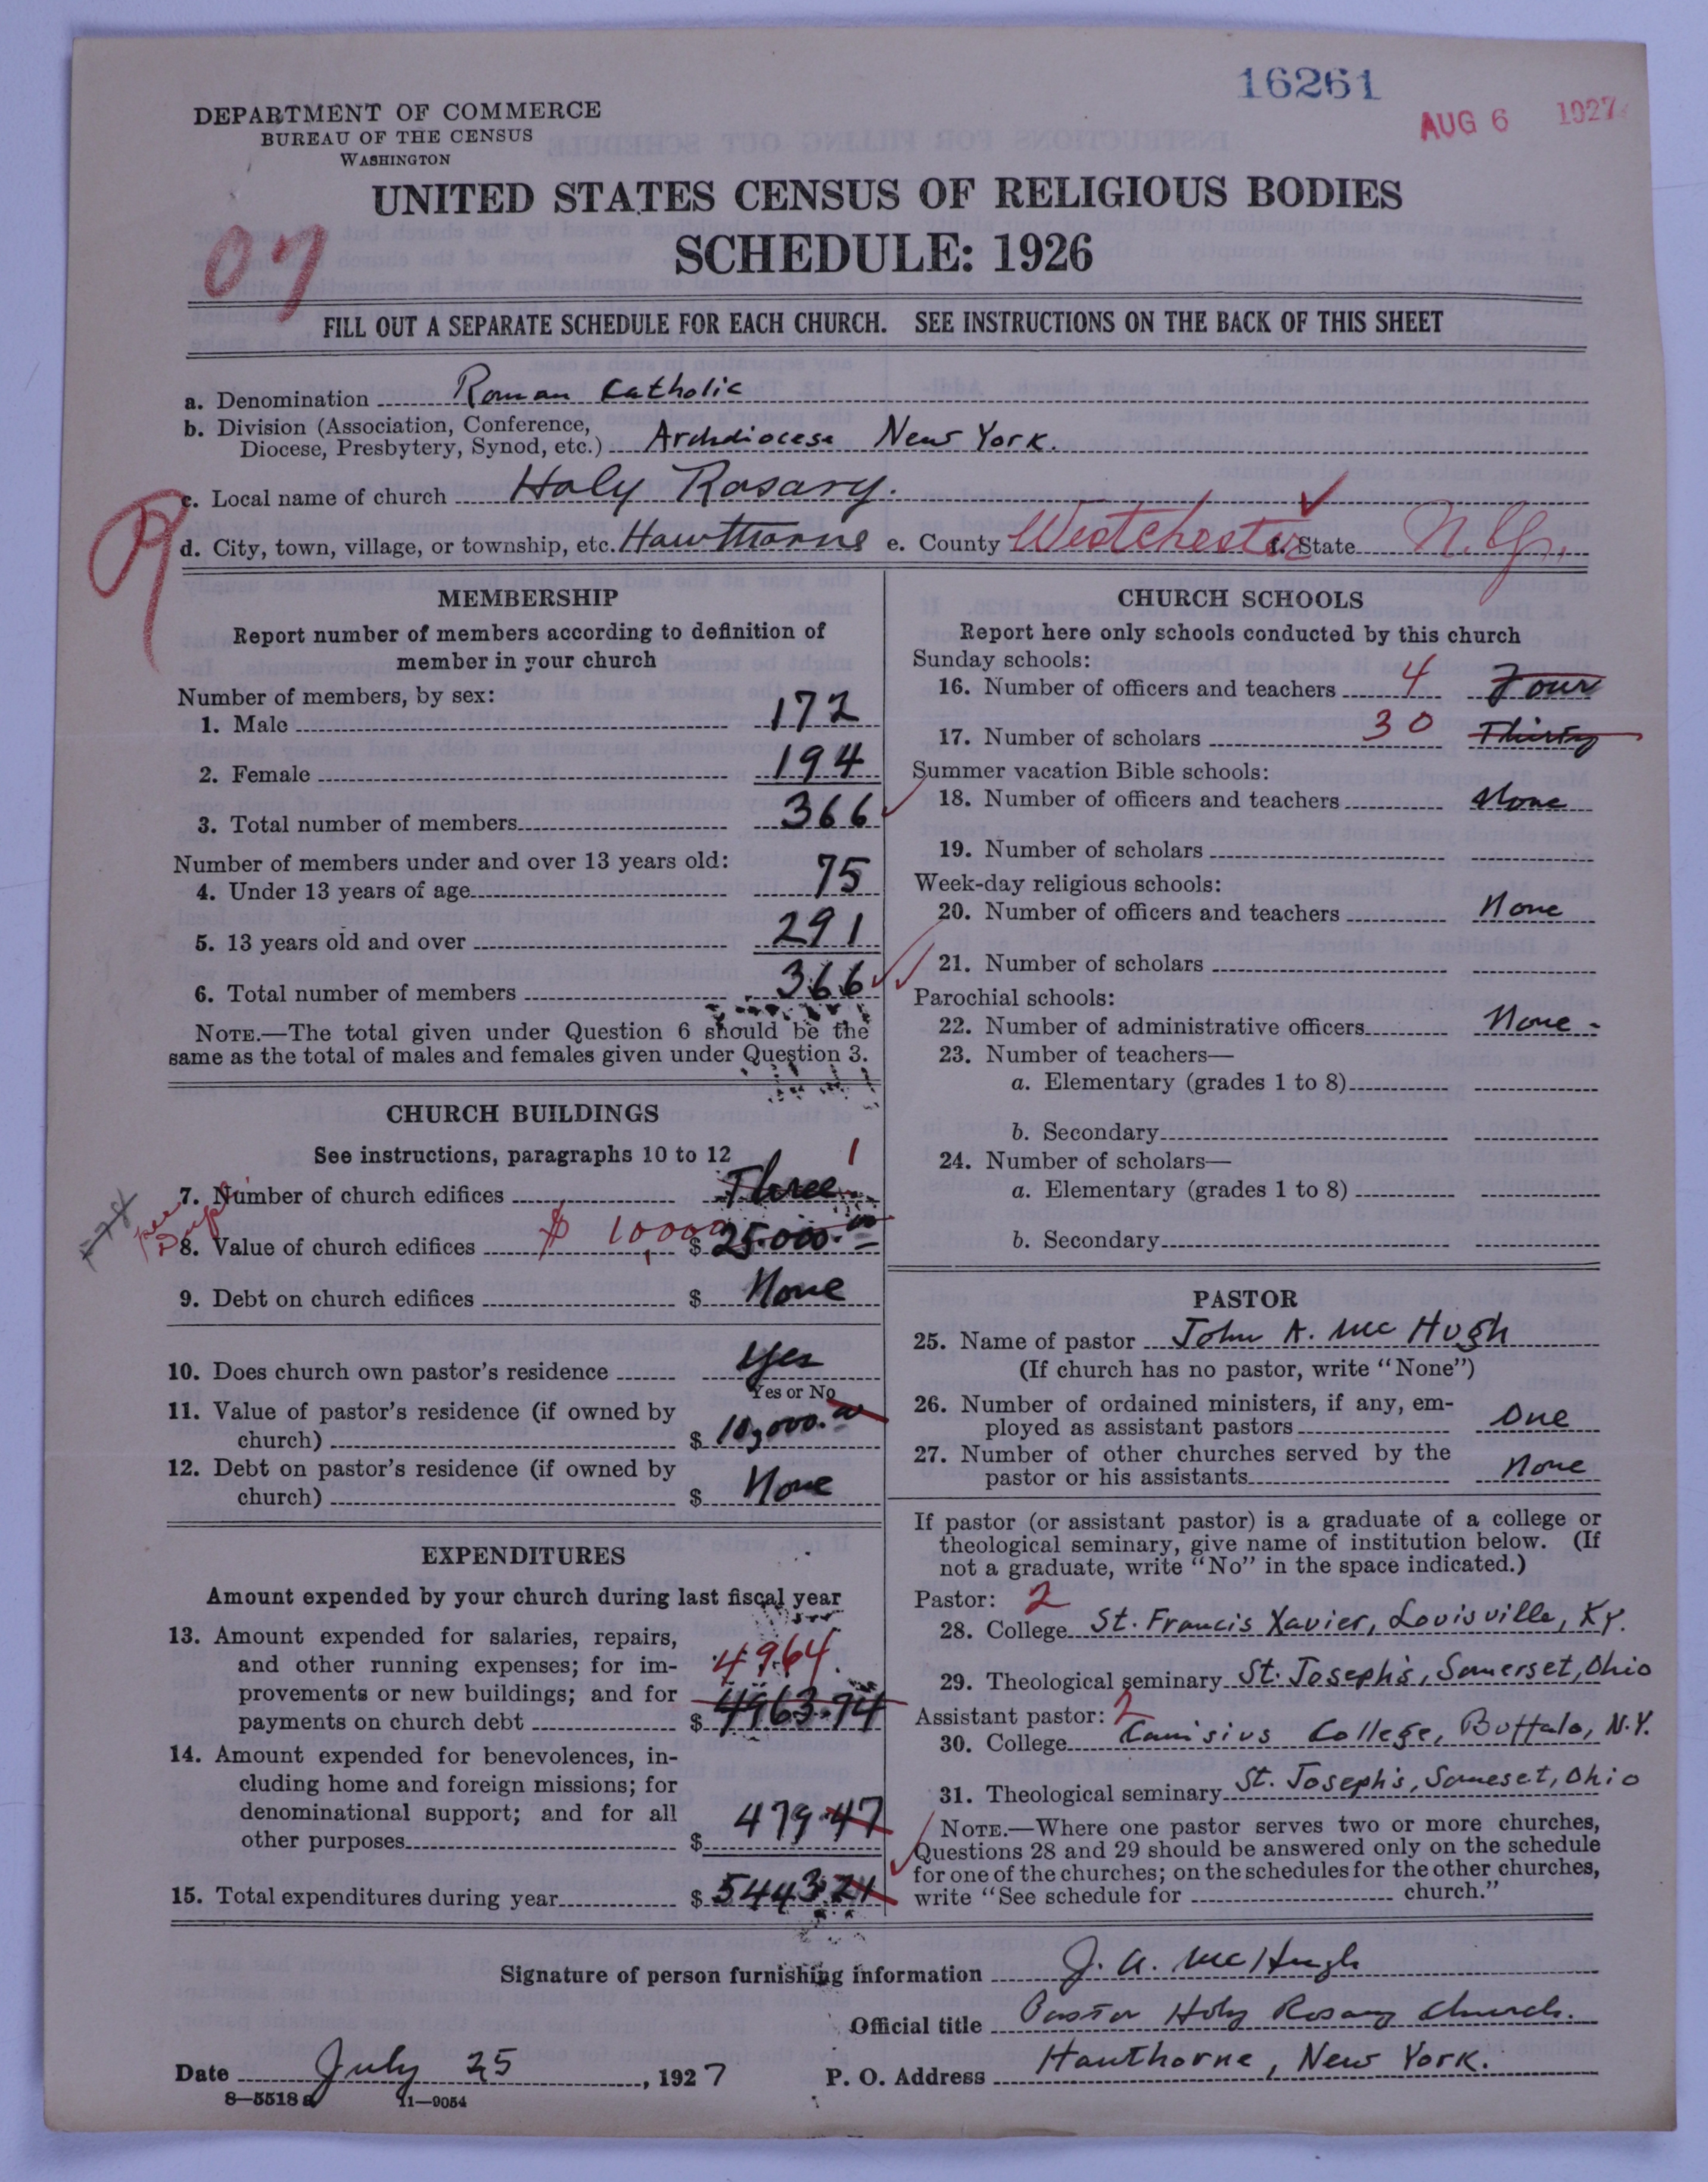 16261
AUG 6 1927
DEPARTMENT OF COMMERCE
BUREAU OF THE CENSUS
WASHINGTON
UNITED STATES CENSUS OF RELIGIOUS BODIES
SCHEDULE: 1926
07
FILL OUT A SEPARATE SCHEDULE FOR EACH CHURCH. SEE INSTRUCTIONS ON THE BACK OF THIS SHEET
a. Denomination Roman Catholic
b. Division (Association, Conference,
Diocese, Presbytery, Synod, etc.) Archdiocese New York.
c. Local name of church Holy Rosary.
d. City, town, village, or township, etc. Hawthorne e. County Westchester f. State N.Y.
MEMBERSHIP
Report number of members according to definition of
member in your church
Number of members, by sex:
1. Male 172
2. Female 194
3. Total number of members 366
Number of members under and over 13 years old:
4. Under 13 years of age 75
5. 13 years old and over 291
6. Total number of members 366
NOTE.—The total given under Question 6 should be the
same as the total of males and females given under Question 3.
CHURCH BUILDINGS
See instructions, paragraphs 10 to 12
7. Number of church edifices Three 1
8. Value of church edifices $ 10,000 $ 25.000.00
9. Debt on church edifices $ None
10. Does church own pastor's residence Yes
Yes or No
11. Value of pastor's residence (if owned by
church) $ 10,000.00
12. Debt on pastor's residence (if owned by
church) $ None
EXPENDITURES
Amount expended by your church during last fiscal year
13. Amount expended for salaries, repairs,
and other running expenses; for im- 4964.
provements or new buildings; and for
payments on church debt $ 4963.74
14. Amount expended for benevolences, in-
cluding home and foreign missions; for
denominational support; and for all
other purposes $ 479.47
15. Total expenditures during year $ 5443.21
CHURCH SCHOOLS
Report here only schools conducted by this church
Sunday schools:
16. Number of officers and teachers 4 Four
17. Number of scholars 30 Thirty
Summer vacation Bible schools:
18. Number of officers and teachers None
19. Number of scholars
Week-day religious schools:
20. Number of officers and teachers None
21. Number of scholars
Parochial schools:
22. Number of administrative officers None -
23. Number of teachers—
a. Elementary (grades 1 to 8)
b. Secondary
24. Number of scholars—
a. Elementary (grades 1 to 8)
b. Secondary
PASTOR
25. Name of pastor John A. McHugh
(If church has no pastor, write "None")
26. Number of ordained ministers, if any, em-
ployed as assistant pastors One
27. Number of other churches served by the
pastor or his assistants None
If pastor (or assistant pastor) is a graduate of a college or
theological seminary, give name of institution below. (If
not a graduate, write "No" in the space indicated.)
Pastor: 2
28. College St. Francis Xavier, Louisville, Ky.
29. Theological seminary St. Joseph's, Somerset, Ohio
Assistant pastor: 2
30. College Canisius College, Buffalo, N.Y.
31. Theological seminary St. Joseph's, Someset, Ohio
NOTE.—Where one pastor serves two or more churches,
Questions 28 and 29 should be answered only on the schedule
for one of the churches; on the schedules for the other churches,
write "See schedule for church."
Signature of person furnishing information J. A. McHugh
Official title Pastor Holy Rosary Church.
Date July 25, 1927 P. O. Address Hawthorne, New York.
8—5518a 11—9054